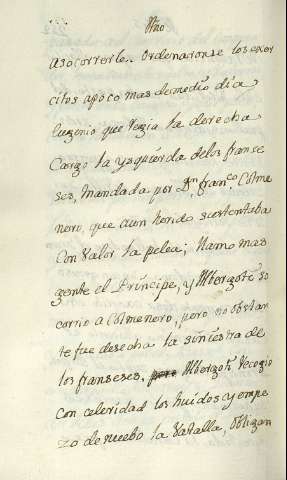 Año
a socorrerle.. Ordenaronse los exer
citos apoco mas de medio dia
Eugenio que regia la derecha
Cargo la ysquierda delos franse
ses, Mandada por Dn. franco. Colme
nero, que aun herido sustentaba
Con Valor la pelea; llamo mas
gente el Principe, y Albergoti so
corrio a Colmenero, pero no obstan
te fue desecha la siniestra de
los franseses, Albergoti recogio
Con celeridad los huidos y empe
zo de nuebo la Vatalla, obligan